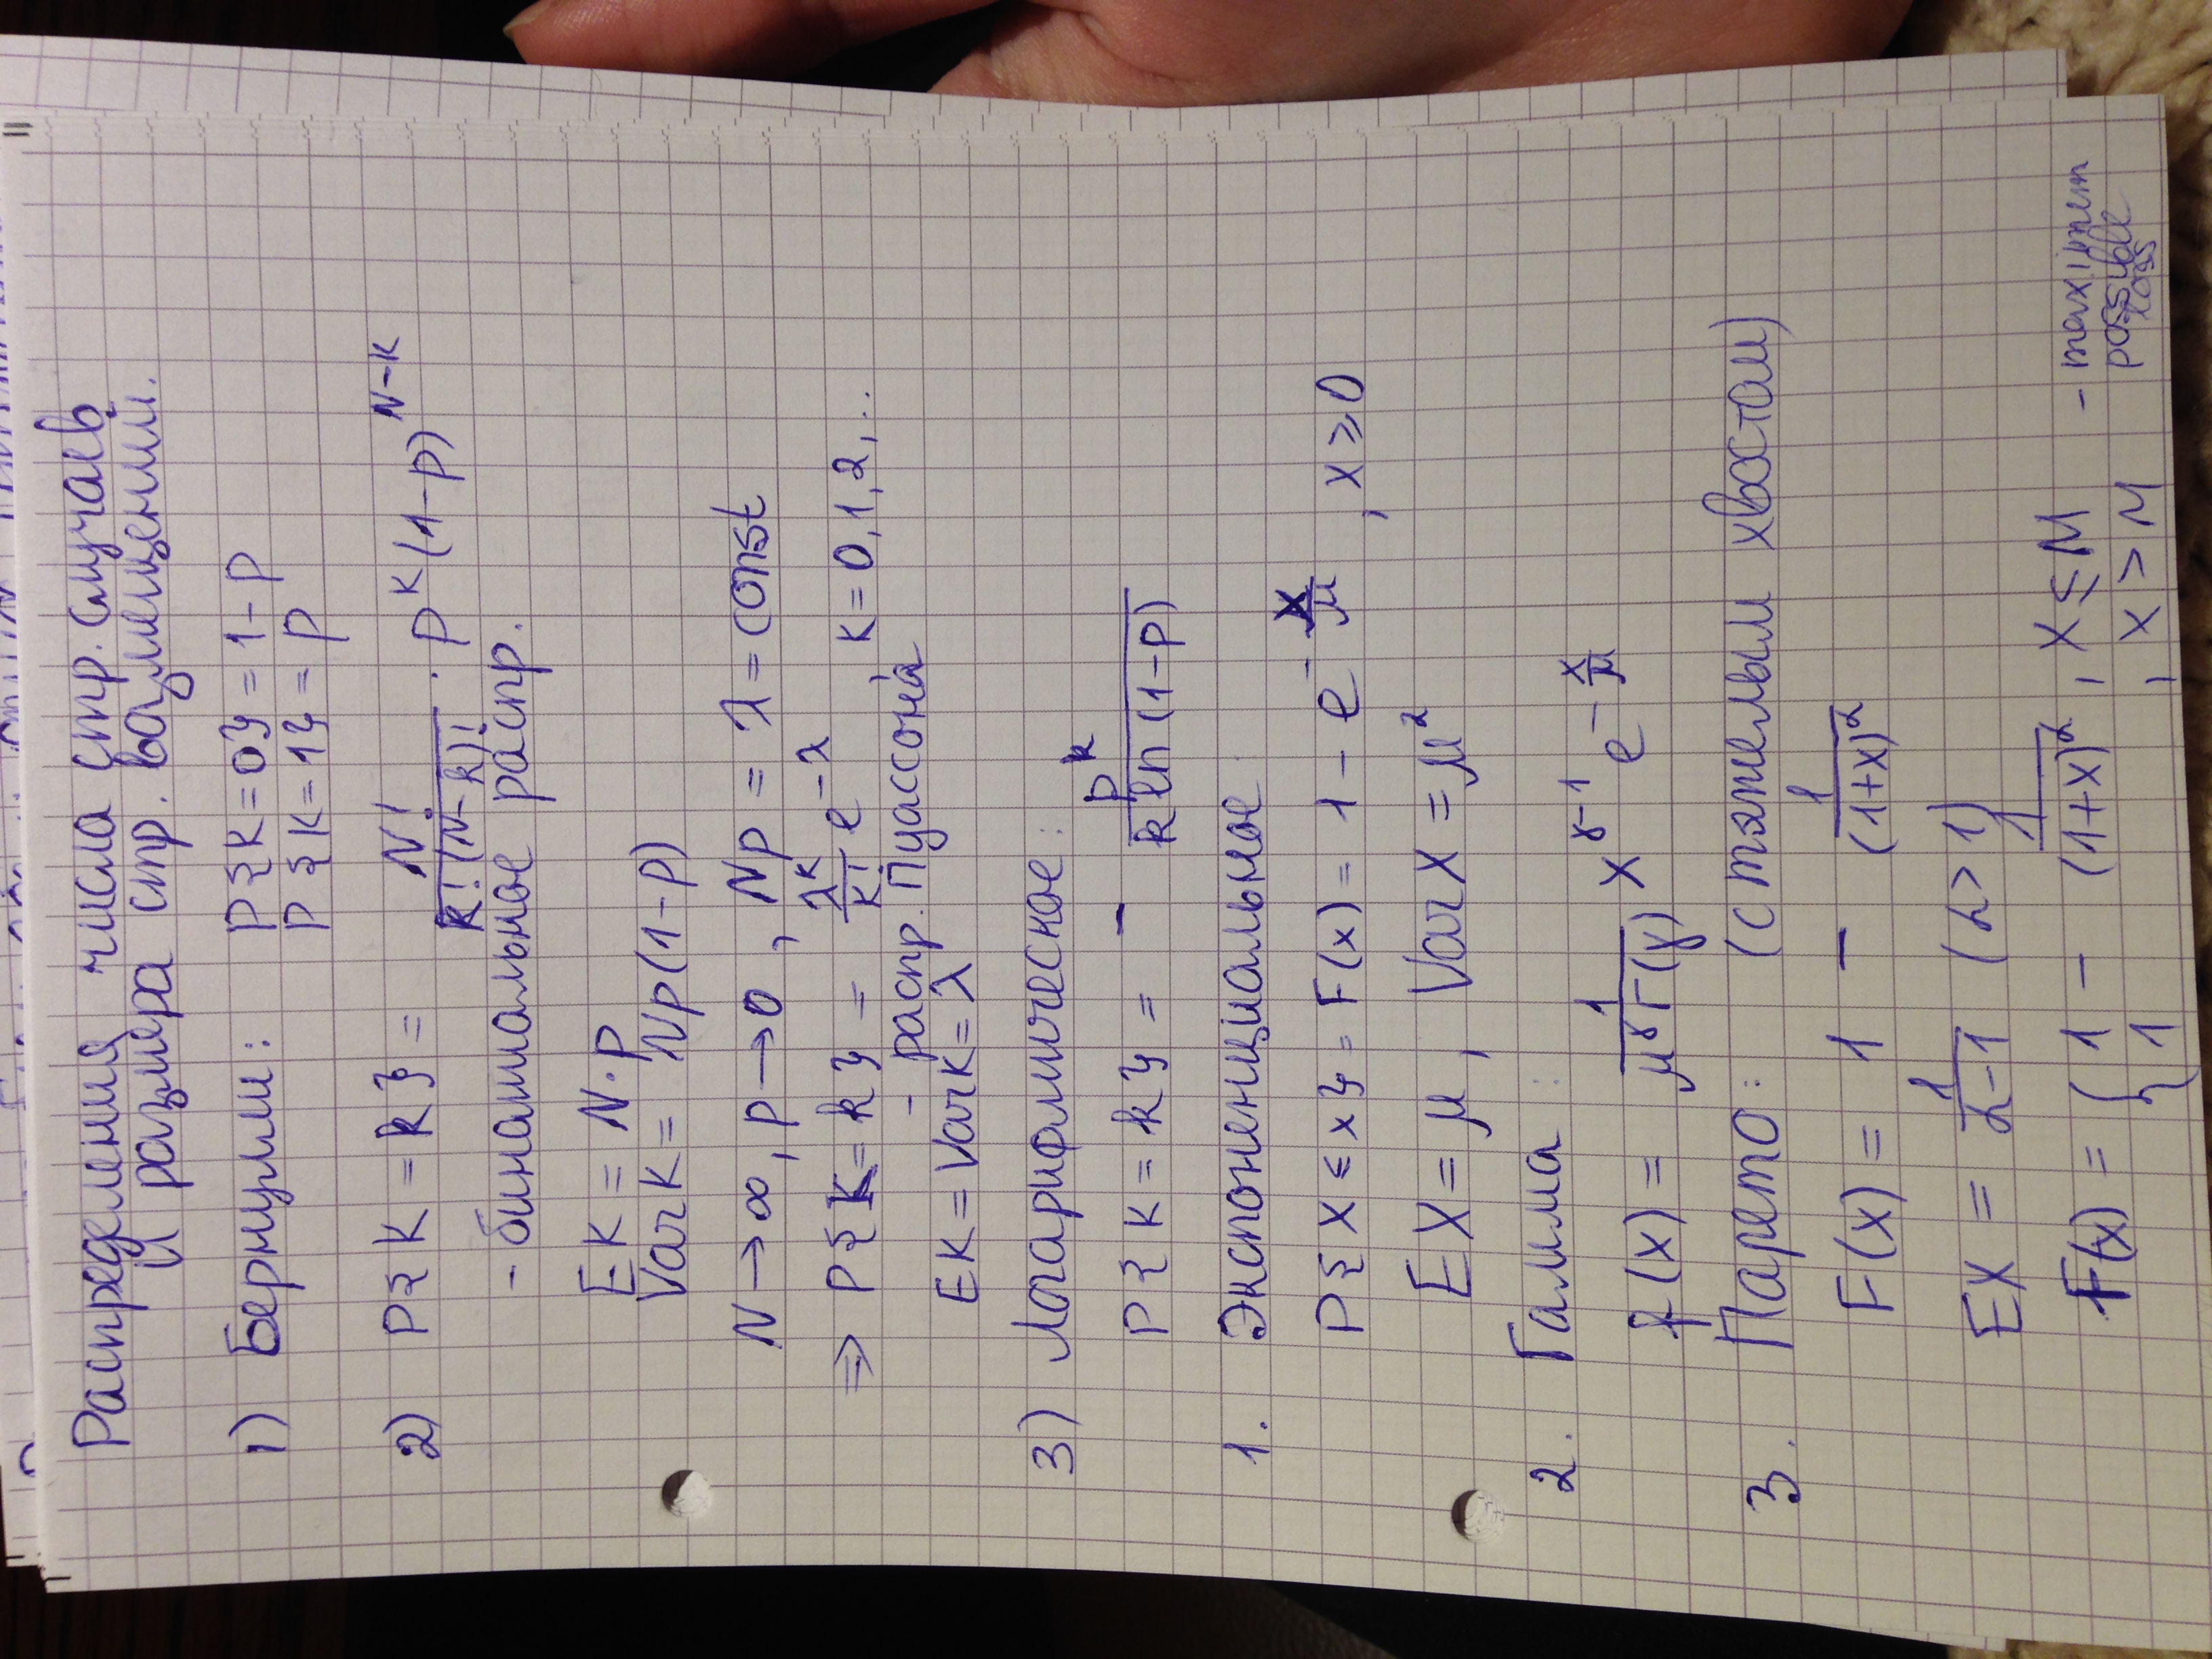 Распределения числа стр. случаев
и размера стр. возмещений.
1) Бернулли: P{K=0} = 1-p
P{K=1} = p
2) P{K=k} = N!/(k!(N-k)!) · p^k (1-p)^(N-k)
- биномиальное распр.
EK = N·p
VarK = Np(1-p)
N→∞, p→0, Np = λ = const
⇒ P{K=k} = λ^k/k! e^(-λ) K=0,1,2,..
- распр. Пуассона
EK = VarK = λ
3) Логарифмическое:
P{K=k} = - p^k/(k ln(1-p))
1. Экспоненциальное:
P{X≤x} = F(x) = 1 - e^(-x/μ), x≥0
EX = μ, VarX = μ²
2. Гамма:
f(x) = 1/(μ^γ Γ(γ)) x^(γ-1) e^(-x/μ)
3. Парето: (с тяжелым хвостом)
F(x) = 1 - 1/(1+x)^α
EX = 1/(α-1) (α>1)
F(x) = { 1 - 1/(1+x)^α, x≤M - maximem
1, x>M possible
loss